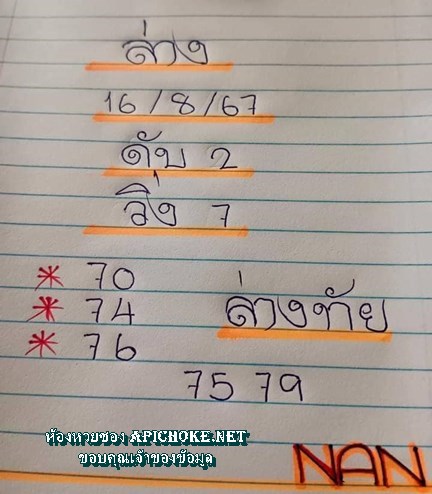 ล่าง
16/8/67
ดับ 2
วิ่ง 7
* 70
* 74
* 76
ล่างทัย
75 79
ห้องหวยซอง APICHOKE.NET
ขอบคุณเจ้าของข้อมูล
NAN